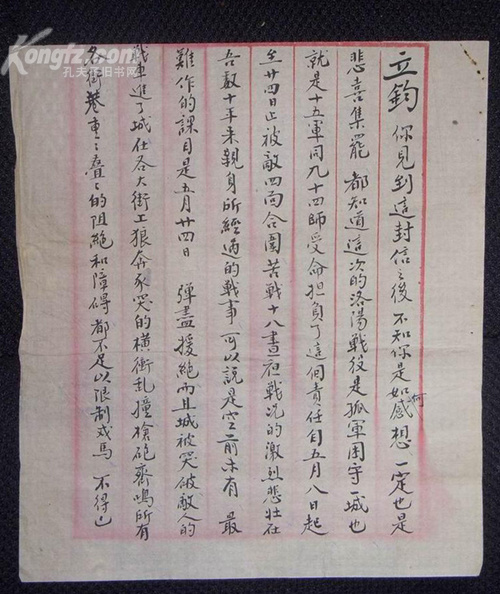 Kongfz.com
孔夫子旧书网
立鈞 你見到這封信之後 不知你是如何感想 一定也是
悲喜集罷 都知道這次的洛陽戰役是孤軍困守一城也
就是十五軍同九十四師受命担負了這個責任自五月八日起
至廿四日止被敵四面合圍苦戰十八晝夜戰況的激烈悲壮在
吾數十年來親身所經過的戰事可以說是空前未有 最
難作的課目是五月廿四日 彈盡援絕而且城被突破敵人的
戰車進了城在各大街上狼奔豕突的橫衝乱撞槍砲齊鳴所有
各街巷重々叠々的阻絕和障碍都不足以限制戎馬 不得已